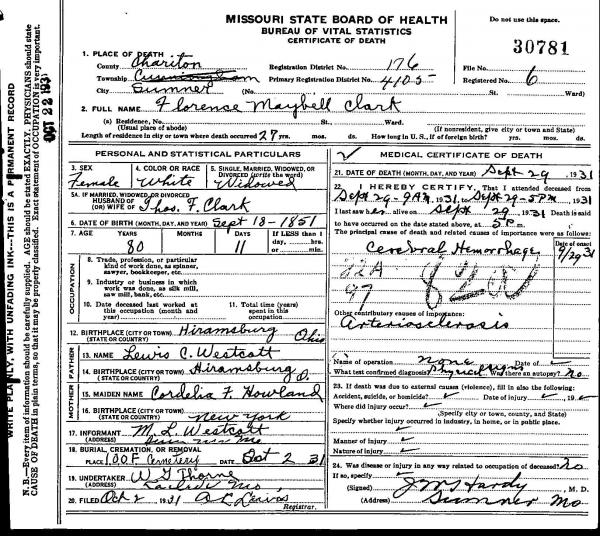 MISSOURI STATE BOARD OF HEALTH
BUREAU OF VITAL STATISTICS
CERTIFICATE OF DEATH
Do not use this space.
30781
1. PLACE OF DEATH
County Chariton Registration District No. 176 File No.
Township Cunningham Primary Registration District No. 4105 Registered No. 6
City Sumner (No. St. Ward)
2. FULL NAME Florence Maybell Clark
(a) Residence, No. St. Ward.
(Usual place of abode) (If nonresident, give city or town and State)
Length of residence in city or town where death occurred 27 yrs. mos. ds. How long in U. S., if of foreign birth? yrs. mos. ds.
PERSONAL AND STATISTICAL PARTICULARS
3. SEX Female
4. COLOR OR RACE White
5. SINGLE, MARRIED, WIDOWED, OR DIVORCED (write the word) Widowed
5A. IF MARRIED, WIDOWED, OR DIVORCED
HUSBAND OF (OR) WIFE OF Thos. F. Clark
6. DATE OF BIRTH (MONTH, DAY, AND YEAR) Sept 18-1851
7. AGE YEARS MONTHS DAYS If LESS than 1 day, hrs. or min.
80 11
OCCUPATION
8. Trade, profession, or particular kind of work done, as spinner, sawyer, bookkeeper, etc.
9. Industry or business in which work was done, as silk mill, saw mill, bank, etc.
10. Date deceased last worked at this occupation (month and year)
11. Total time (years) spent in this occupation
12. BIRTHPLACE (CITY OR TOWN) Hiramsburg
(STATE OR COUNTRY) Ohio
FATHER
13. NAME Lewis C. Westcott
14. BIRTHPLACE (CITY OR TOWN) Hiramsburg
(STATE OR COUNTRY) O.
MOTHER
15. MAIDEN NAME Cordelia F. Howland
16. BIRTHPLACE (CITY OR TOWN)
(STATE OR COUNTRY) New York
17. INFORMANT M. L. Westcott
(ADDRESS) Mo
18. BURIAL, CREMATION, OR REMOVAL
PLACE I.O.O.F. Cemetery DATE Oct 2 31
19. UNDERTAKER W G Thorne
(ADDRESS) Laclede Mo,
20. FILED Oct 2, 1931
Registrar.
MEDICAL CERTIFICATE OF DEATH
21. DATE OF DEATH (MONTH, DAY, AND YEAR) Sept 29, 1931
22. I HEREBY CERTIFY, That I attended deceased from
Sept 29-9AM, 1931, to Sept 29-5PM, 1931
I last saw her alive on Sept 29, 1931 Death is said
to have occurred on the date stated above, at 5 P.m.
The principal cause of death and related causes of importance were as follows:
Date of onset
Cerebral Hemorrhage 9/29 31
82A
97
Other contributory causes of importance:
Arteriosclerosis
Name of operation none Date of
What test confirmed diagnosis? Physical signs Was there an autopsy? No
23. If death was due to external causes (violence), fill in also the following:
Accident, suicide, or homicide? Date of injury , 19
Where did injury occur?
(Specify city or town, county, and State)
Specify whether injury occurred in industry, in home, or in public place.
Manner of injury
Nature of injury
24. Was disease or injury in any way related to occupation of deceased? No
If so, specify
(Signed) J M Hardy, M. D.
(Address) Sumner Mo
OCT 22 1931
WRITE PLAINLY, WITH UNFADING INK---THIS IS A PERMANENT RECORD
N. B.—Every item of information should be carefully supplied. AGE should be stated EXACTLY. PHYSICIANS should state
CAUSE OF DEATH in plain terms, so that it may be properly classified. Exact statement of OCCUPATION is very important.